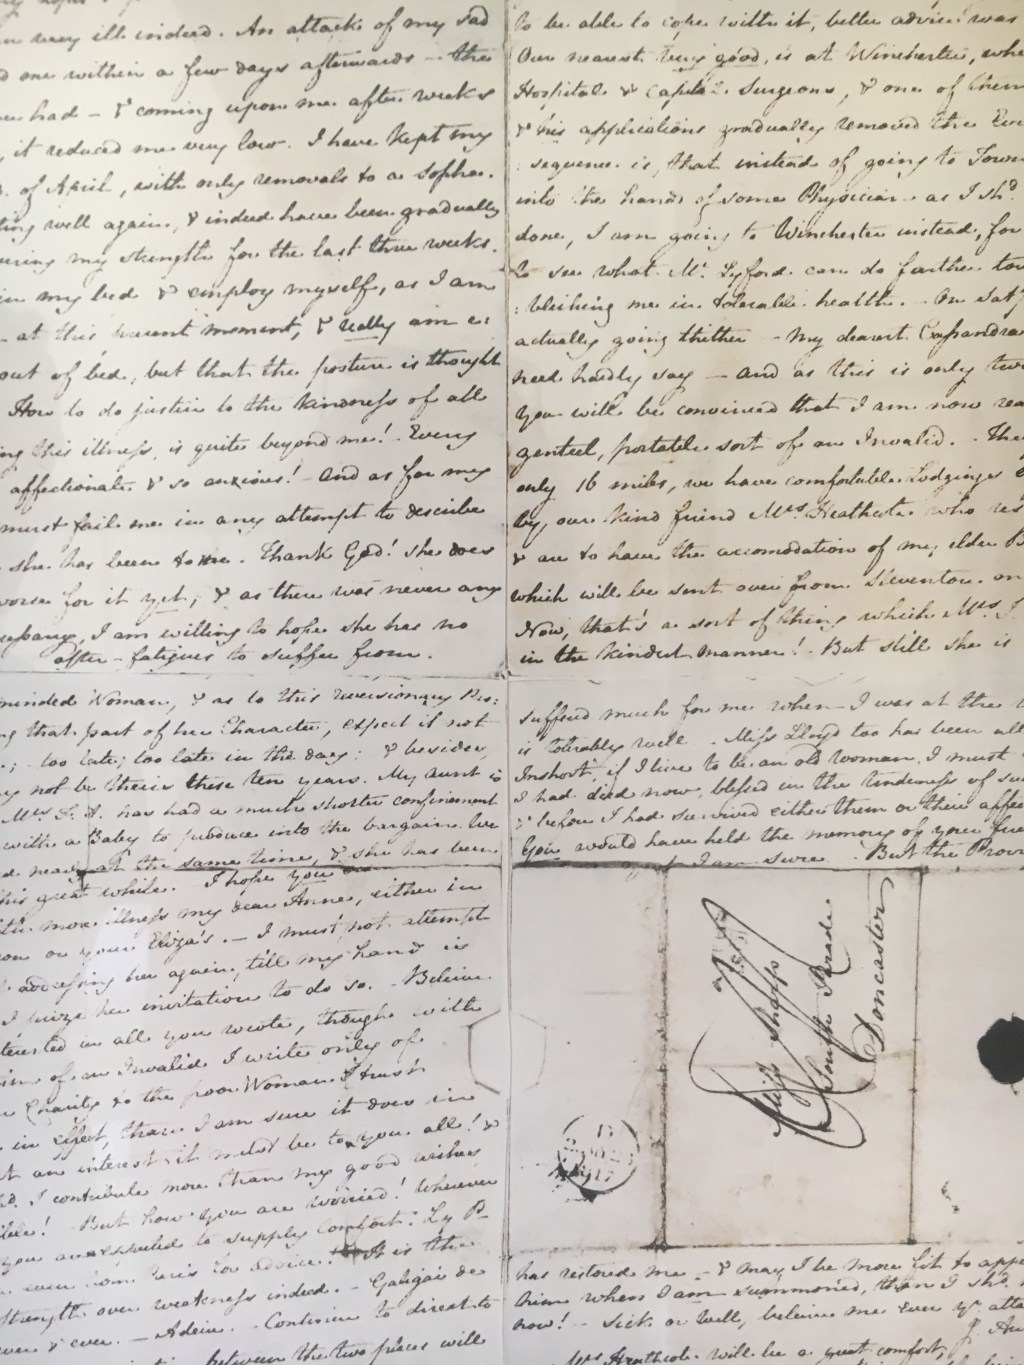 very ill indeed. An attack of my sad
one within a few days afterwards — the
had — & coming upon me after weeks
it reduced me very low. I have kept my
of April, with only removals to a Sopha.
well again, & indeed have been gradually
my strength for the last three weeks.
in my bed & employ myself, as I am
at this present moment, & really am
out of bed, but that the posture is thought
How to do justice to the kindness of all
this illness, is quite beyond me! — Every
affectionate & so anxious! — And as for my
must fail me in any attempt to describe
she has been to me. Thank God! she does
worse for it yet; & as there was never any
I am willing to hope she has no
after-fatigues to suffer from.
to be able to cope with it, better advice was
Our nearest very good, is at Winchester, whe
Hospital & capital Surgeons, & one of them
& his applications gradually removed the Evi
:sequence is, that instead of going to Town
into the hands of some Physician as I shd.
done, I am going to Winchester instead, for
to see what Mr. Lyford can do farther tow
:blishing me in tolerable health. — On Saty
actually going thither — My dearest Cassandra
need hardly say — And as this is only two
you will be convinced that I am now rea
genteel, portable sort of an Invalid. — The
only 16 miles, we have comfortable Lodgings
by our kind friend Mrs. Heathcote who res
& are to have the accomodation of my elder B
which will be sent over from Steventon on
Now, that's a sort of thing which Mrs. J.
in the kindest manner! — But still she is
minded Woman, & as to this reversionary Pro:
that part of her Character, expect it not
too late, too late in the day: & besides,
not be theirs these ten years. My Aunt is
Mrs. F. A. has had a much shorter confinement
with a Baby to produce into the bargain. We
at the same time, & she has been
this great while. I hope you
more illness my dear Anne, either in
or your Eliza's. — I must not attempt
addressing her again, till my hand is
I prize her invitation to do so. — Believe
in all you wrote, though with
of an Invalid I write only of
Charity to the poor Woman I trust
in effect, than I am sure it does in
an interest it must be to you all! &
I contribute more than my good wishes
But how you are worried! Wherever
you are expected to supply Comfort. Ly P.
even from Paris for advice! — It is the
Strength over weakness indeed. — Galigai de
ever & ever. — Adeiu. — Continue to direct to
between the two pieces will
suffered much for me when I was at the
is tolerably well. — Miss Lloyd too has been all
In short, if I live to be an old Woman I must
I had died now, blessed in the tenderness of su
& before I had survived either them or their affec
You would have held the memory of your frie
I am sure. — But the Provi
Miss Sharp
South Parade
Doncaster
17
has restored me — & may I be more fit to appe
him when I am summoned, than I shd.
now! — Sick or Well, beleive me ever yr. atta
J. Au
Mrs. Heathcote will be a great comfort